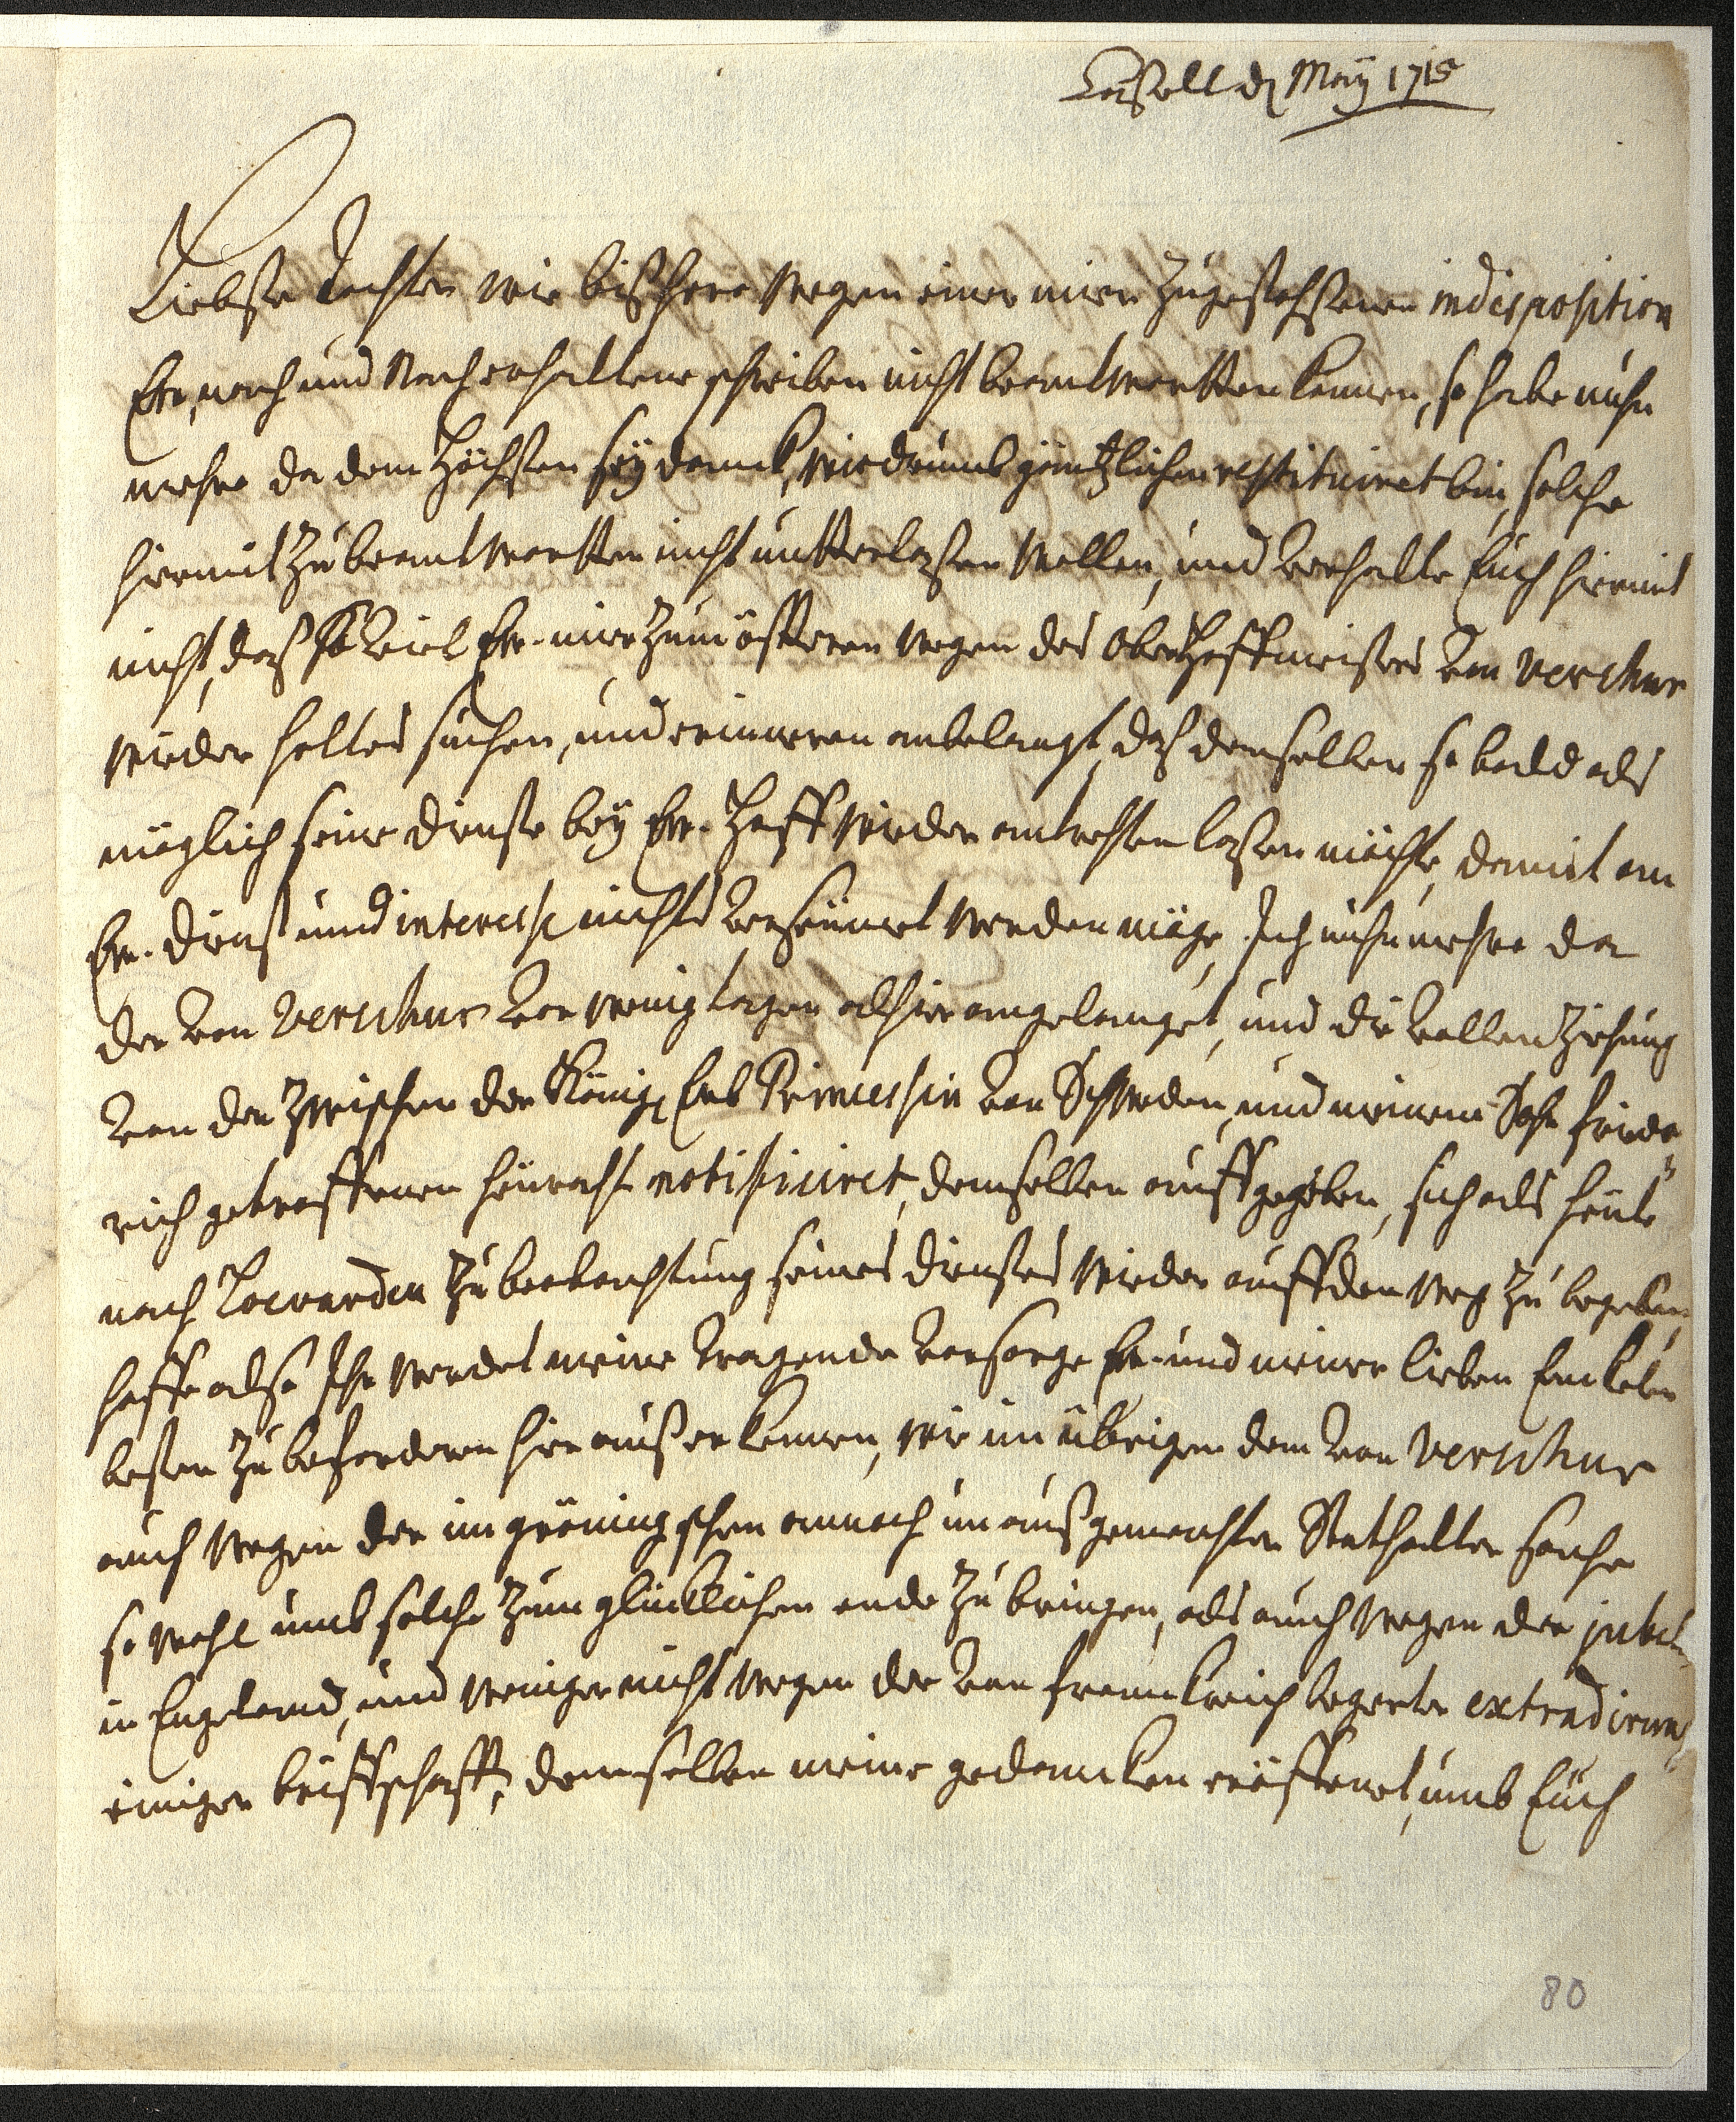 Caßell d Maÿ 1715
Liebste Tochter wie bißhero wegen einer mier zugestoßenen indisposition
Ew. nach und Nach erhaltene schreiben nicht beantwortten können, so habe nuhn
mehro da dem Höchsten seÿ danck, wiedrumb gäntzlichen restituiret bin, solche
hiermit zu beantwortten nicht untterlaßen wollen, und verhalte Euch hiermit
nicht, daß so viel Ew. mier zum öffteren wegen des Oberhoffmeisters von verschuer
wieder holtes suchen, und erinneren anbelangt, daß demselben so bald als
müglich seine dienste beÿ Ew. Hoff wieder antretten laßen möchte, damit an
Ew. dienst und interesse nichts verseumet werden möge, Ich nuhnmehro da
der von verschuer vor wenig tagen alhier angelanget, und die vollenziehung
von der zwischen der König. Erb Princessin von Schweden, und meinem Sohn friede
rich getroffenen heuraht notificiret, demselben auffgegeben, sich als heute
nach Lewarden zu beobachtung seines dienstes wieder auff den weg zu begeben,
hoffe also Ihr werdet meine tragende vorsorge Ew. und meiner lieben Enckelen
besten zu beforderen hierauß erkennen, wie im übrigen dem von verschuer
auch wegen der im gröningschen annoch unaußgemachten Stathalter sache
so wohl umb solche zum glücklichen ende zu bringen, als auch wegen der
in Engeland, und weniger nicht wegen der von franckreich begerten extradirung
einiger briffschafft, demselben meine gedancken eröffenet, umb Euch
80